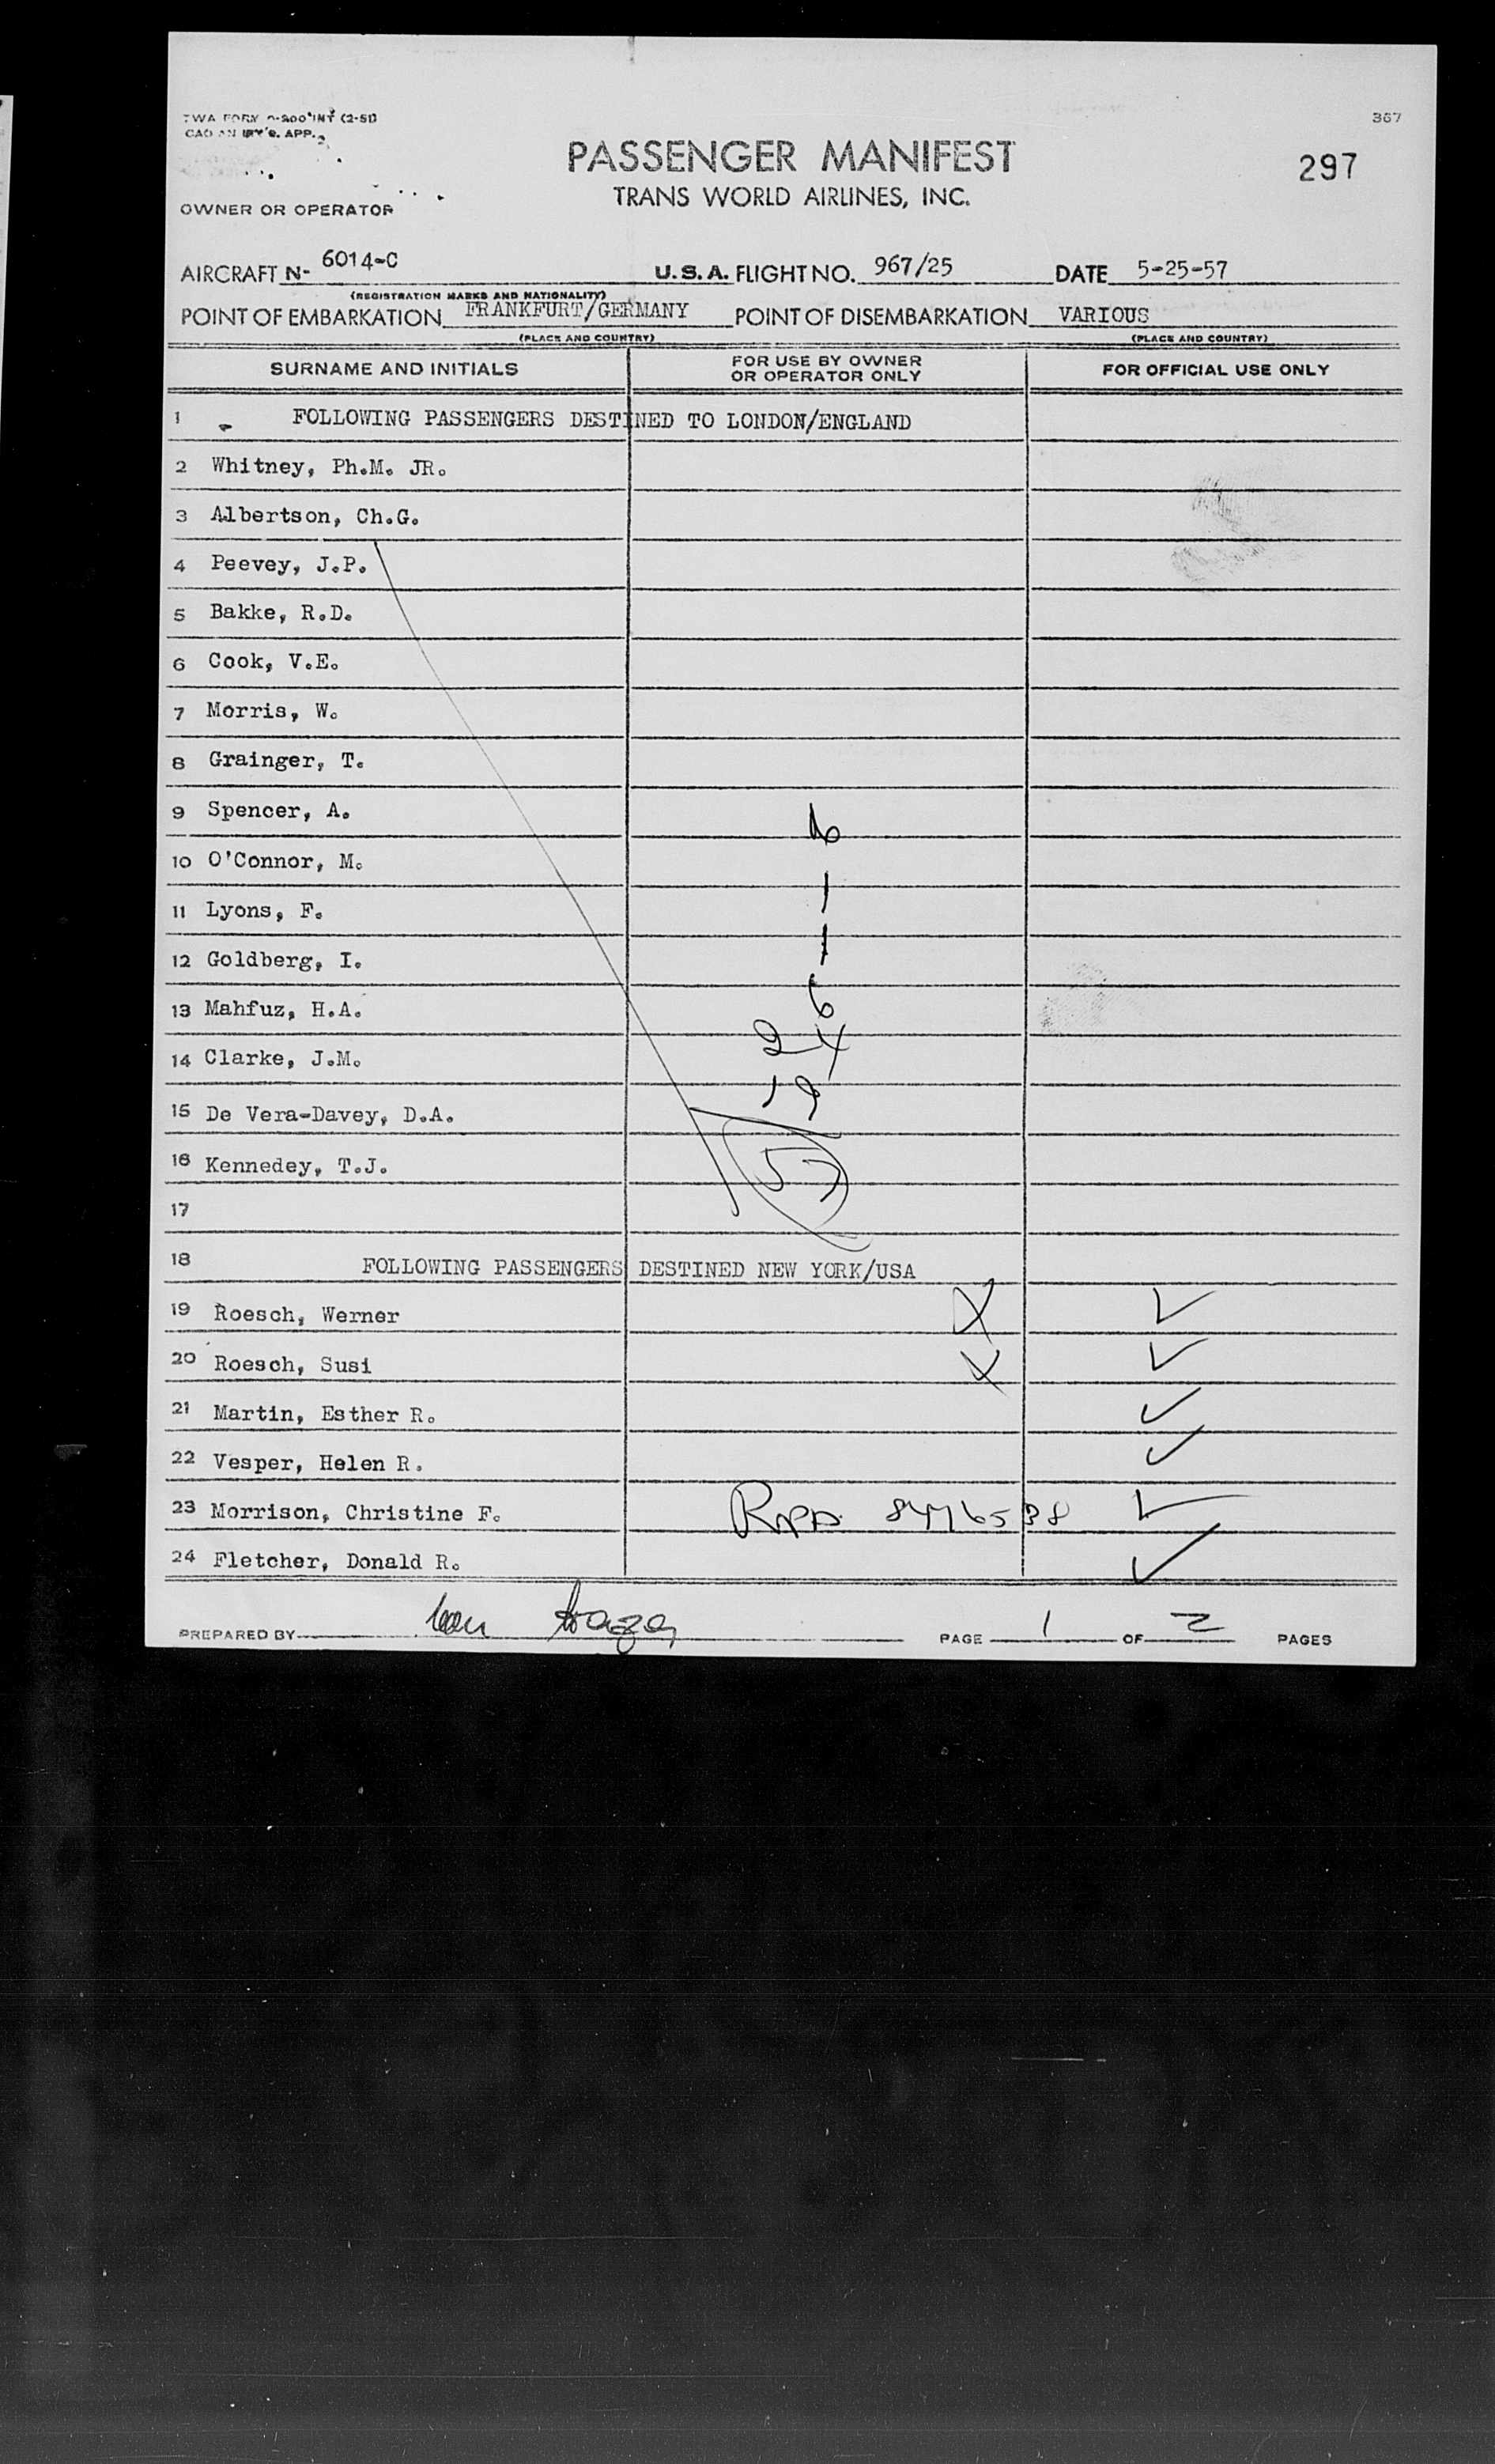 367
PASSENGER MANIFEST
297
TRANS WORLD AIRLINES, INC.
OWNER OR OPERATOR
AIRCRAFT N- 6014-C U.S.A. FLIGHT NO. 967/25 DATE 5-25-57
(REGISTRATION MARKS AND NATIONALITY)
POINT OF EMBARKATION FRANKFURT/GERMANY POINT OF DISEMBARKATION VARIOUS
(PLACE AND COUNTRY) (PLACE AND COUNTRY)
SURNAME AND INITIALS FOR USE BY OWNER OR OPERATOR ONLY FOR OFFICIAL USE ONLY
1 FOLLOWING PASSENGERS DESTINED TO LONDON/ENGLAND
2 Whitney, Ph.M. JR.
3 Albertson, Ch.G.
4 Peevey, J.P.
5 Bakke, R.D.
6 Cook, V.E.
7 Morris, W.
8 Grainger, T.
9 Spencer, A.
10 O'Connor, M.
11 Lyons, F.
12 Goldberg, I.
13 Mahfuz, H.A. 6
14 Clarke, J.M. 24
15 De Vera-Davey, D.A. 19
16 Kennedey, T.J. 57
17
18 FOLLOWING PASSENGERS DESTINED NEW YORK/USA
19 Roesch, Werner X ✓
20 Roesch, Susi X ✓
21 Martin, Esther R. ✓
22 Vesper, Helen R. ✓
23 Morrison, Christine F. ✓
24 Fletcher, Donald R. ✓
PREPARED BY PAGE 1 OF 2 PAGES